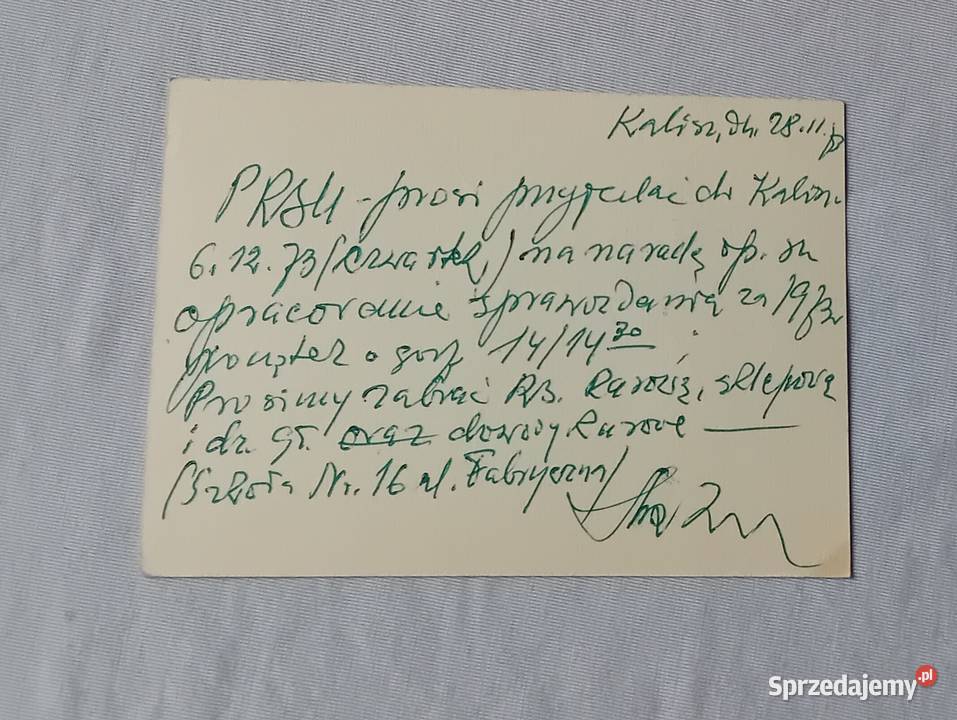 Kalisz, dn. 28.11.73
prosi przyjechać do Kalisza
6.12.73 (czwartek) na naradę
opracowanie sprawozdania za 1973r
początek o godz 14/14 30
Prosimy zabrać RB. kasową, sklepową
i dz. gł. oraz dowody kasowe
(Szkoła Nr. 16 ul. Fabryczna)
Sprzedajemy.pl